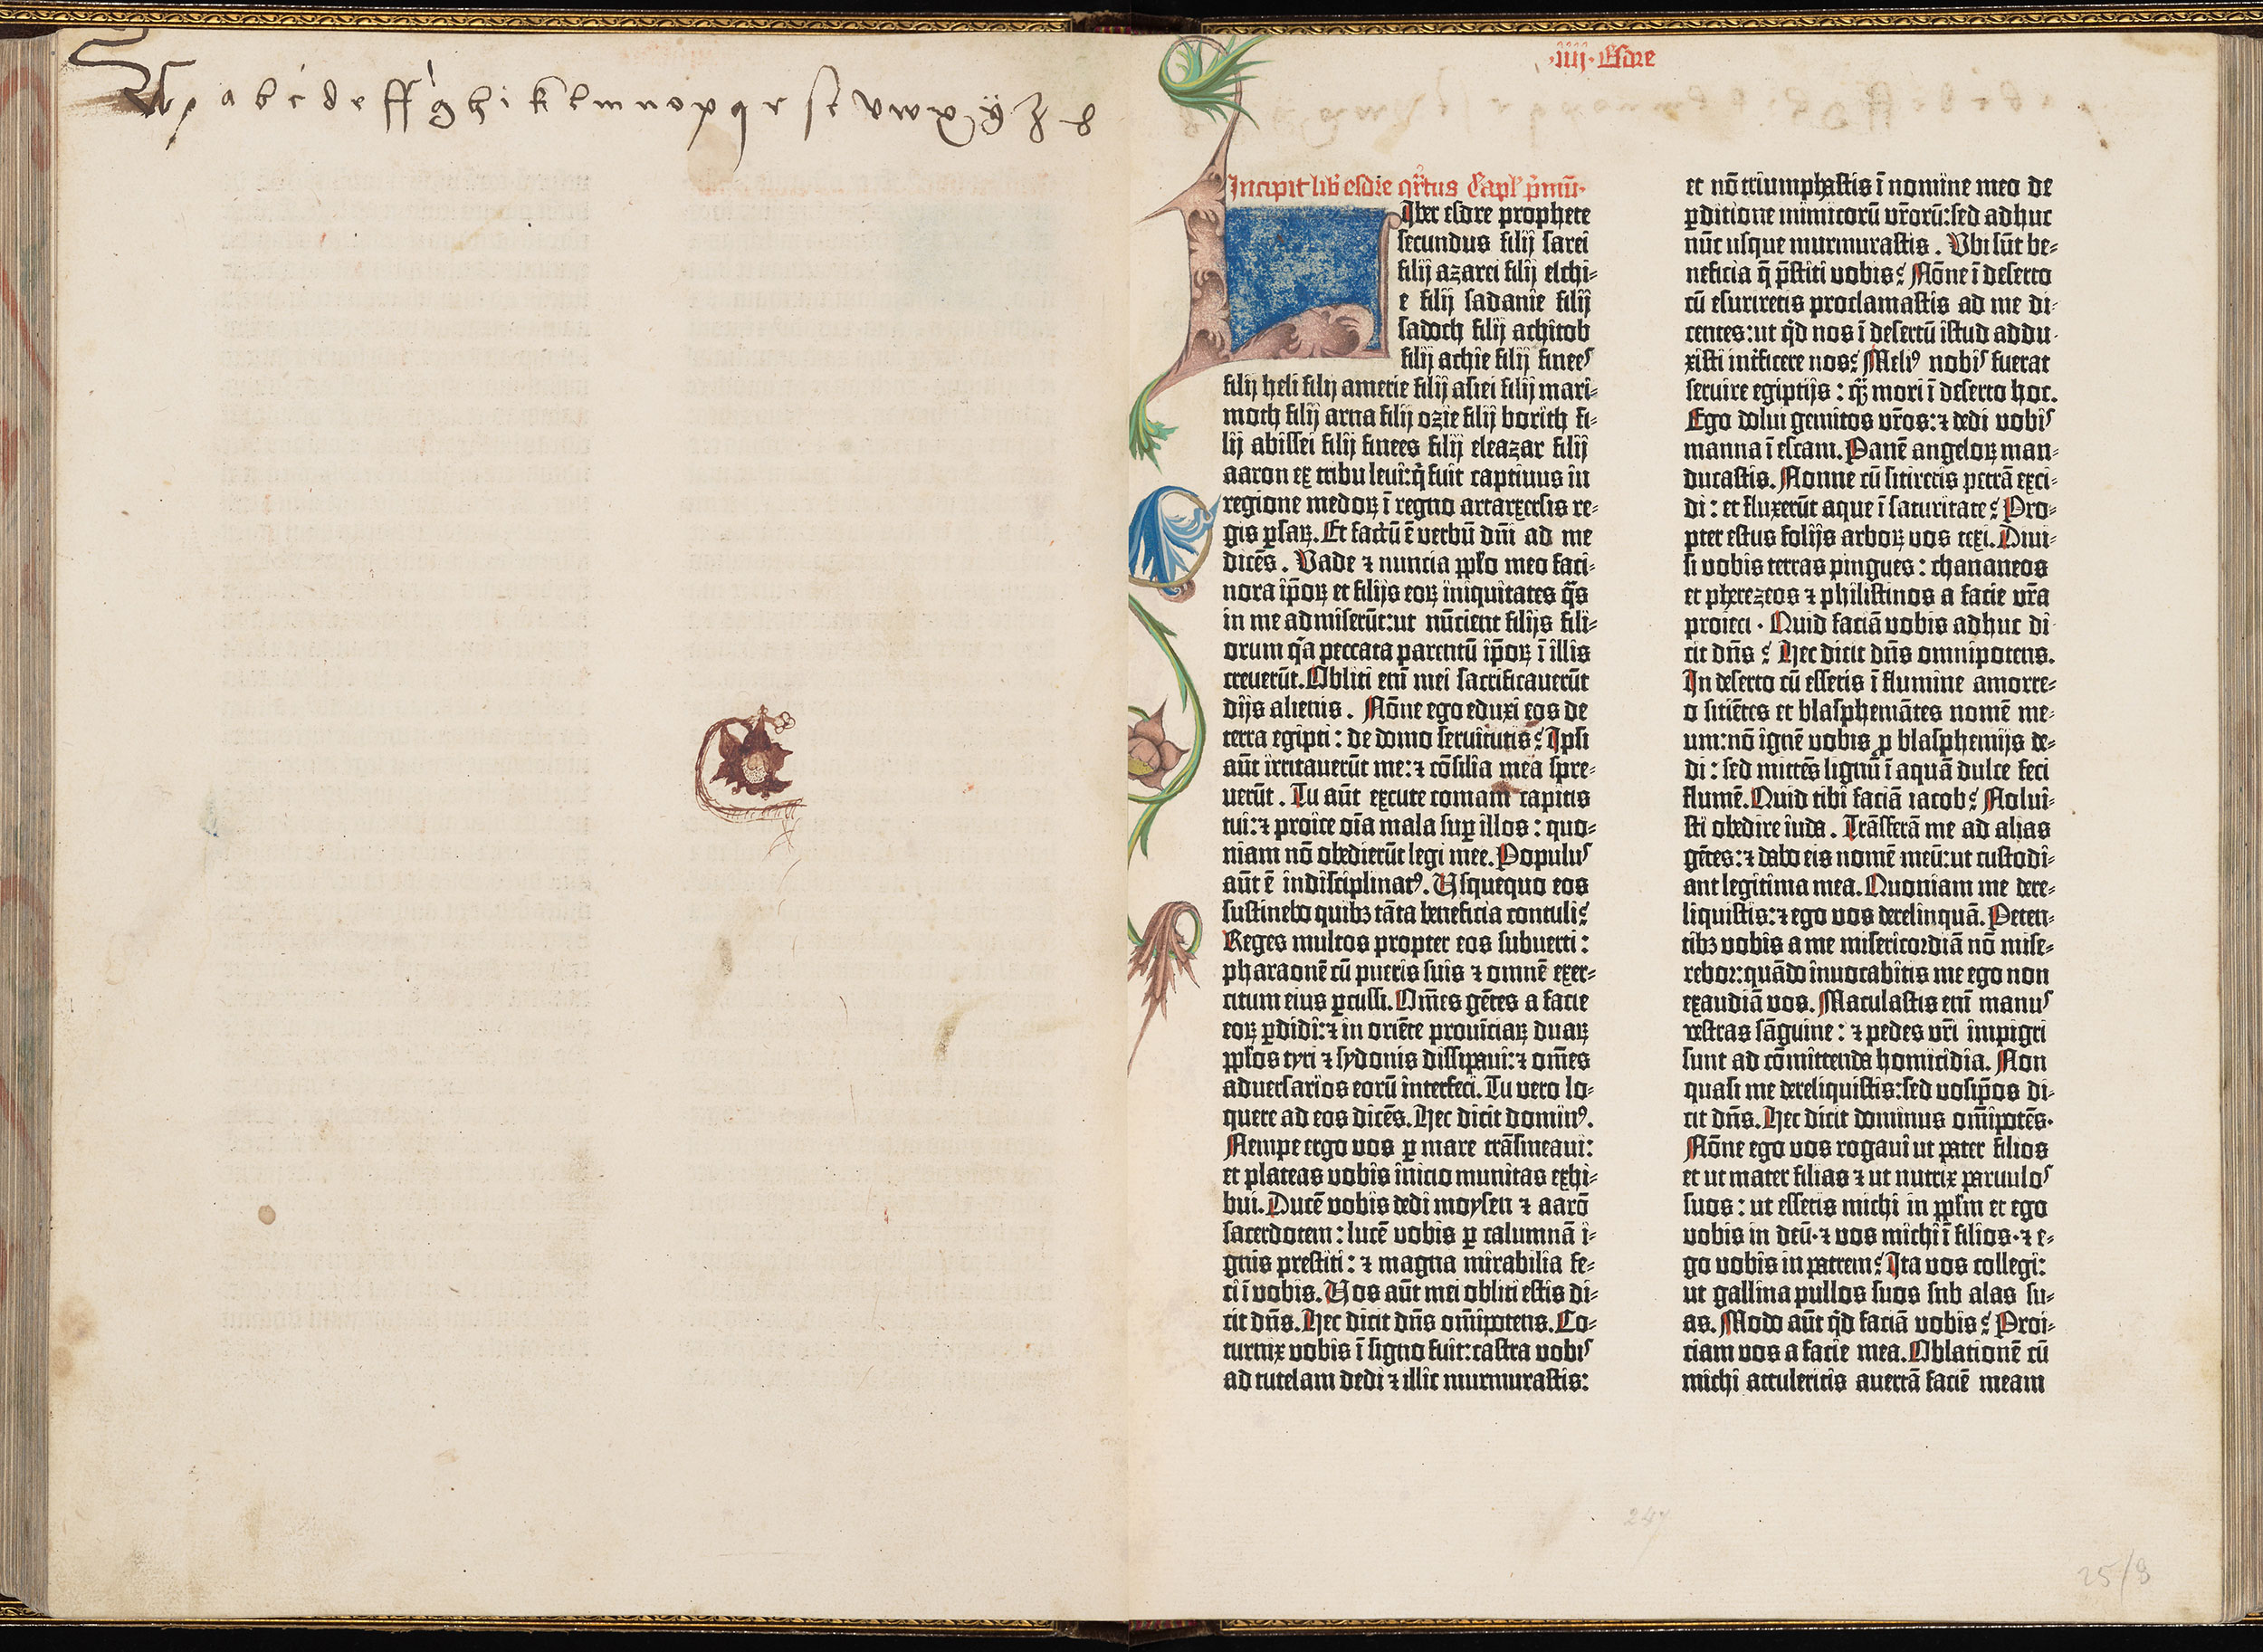 a b c d e ff g h i k l m n o p q r s t v w x ÿ z
.iiij. Esdre
Incipit lib̄ esdre qr̄tus Capl' pˉmū.
Iber esdre prophete
secundus filij sarei
filij azarei filij elchi-
e filij sadanie filij
sadoch filij achitob
filij achie filij finees
filij heli filij amerie filij asiei filij mari-
moth filij arna filij ozie filij borith fi-
lij abissei filij finees filij eleazar filij
aaron ex tribu leui:q̇ fuit captiuus in
regione medoꝝ ī regno artarxersis re-
gis ꝑsaꝝ. Et factū ē verbū dn̄i ad me
dicēs. Vade ⁊ nuncia pp̄lo meo faci-
nora ip̄oꝝ et filijs eoꝝ iniquitates q̄s
in me admiserūt:ut nūcient filijs fili-
orum q̄a peccata parentū ip̄oꝝ ī illis
creuerūt. Obliti enī mei sacrificauerūt
dijs alienis. Nōne ego eduxi eos de
terra egipti: de domo seruitutis? Ipsi
aūt irritauerūt me:⁊ cōsilia mea spre-
uerūt. Tu aūt excute comam capitis
tui:⁊ proice oīa mala suꝑ illos: quo-
niam nō obedierūt legi mee. Populus
aūt ē indisciplinatꝰ. Usquequo eos
sustinebo quibꝫ tāta beneficia contuli?
Reges multos propter eos subuerti:
pharaonē cū pueris suis ⁊ omnē exer-
citum eius ꝑcussi. Om̄es gētes a facie
eoꝝ ꝑdidi:⁊ in oriēte prouīciaꝝ duaꝝ
pp̄los tyri ⁊ sydonis dissipaui:⁊ om̄es
aduersarios eorū interfeci. Tu vero lo-
quere ad eos dicēs. Hec dicit dominꝰ.
Nempe ergo vos ꝑ mare trāsmeaui:
et plateas vobis inicio munitas exhi-
bui. Ducē vobis dedi moysen ⁊ aarō
sacerdotem: lucē vobis ꝑ calumnā i-
gnis prestiti: ⁊ magna mirabilia fe-
ci ī vobis. Vos aūt mei obliti estis di-
cit dn̄s. Hec dicit dn̄s om̄ipotens. Co-
turnix vobis ī signo fuit:castra vobis
ad tutelam dedi ⁊ illic murmurastis:
et nō triumphastis ī nomine meo de
ꝑditione inimicorū vr̄orū:sed adhuc
nūc usque murmurastis. Vbi sūt be-
neficia q̄ p̄stiti vobis? Nōne ī deserto
cū esuriretis proclamastis ad me di-
centes:ut q̇d nos ī desertū istud addu-
xisti int̄ficere nos? Meliꝰ nobis fuerat
seruire egiptijs: q̄ꝫ mori ī deserto hoc.
Ego dolui gemitos vr̄os:⁊ dedi vobis
manna ī escam. Panē angeloꝝ man-
ducastis. Nonne cū sitiretis petrā exci-
di: et fluxerūt aque ī saturitate? Pro-
pter estus folijs arboꝝ vos texi. Diui-
si vobis terras pingues: chananeos
et pherezeos ⁊ philistinos a facie vr̄a
proieci. Quid faciā vobis adhuc di-
cit dn̄s? Hec dicit dn̄s omnipotens.
In deserto cū essetis ī flumine amorre-
o sitiētes et blasphemātes nomē me-
um:nō ignē vobis ꝓ blasphemijs de-
di: sed mittēs lignū ī aquā dulce feci
flumē. Quid tibi faciā iacob? Nolui-
sti obedire iuda. Trāsferā me ad alias
gētes:⁊ dabo eis nomē meū:ut custodi-
ant legitima mea. Quoniam me dere-
liquistis:⁊ ego vos derelinquā. Peten-
tibꝫ vobis a me misericordiā nō mise-
rebor:quādo inuocabitis me ego non
exaudiā vos. Maculastis enī manus
vestras sāguine: ⁊ pedes vr̄i impigri
sunt ad cōmittenda homicidia. Non
quasi me dereliquistis:sed vosip̄os di-
cit dn̄s. Hec dicit dominus om̄ipotēs.
Nōne ego vos rogaui ut pater filios
et ut mater filias ⁊ ut nutrix paruulos
suos: ut essetis michi in pp̄lm et ego
vobis in deū.⁊ vos michi ī filios.⁊ e-
go vobis in patrem? Ita vos collegi:
ut gallina pullos suos sub alas su-
as. Modo aūt q̇d faciā vobis? Proi-
ciam vos a facie mea. Oblationē cū
michi attuleritis auertā faciē meam
247
25/9